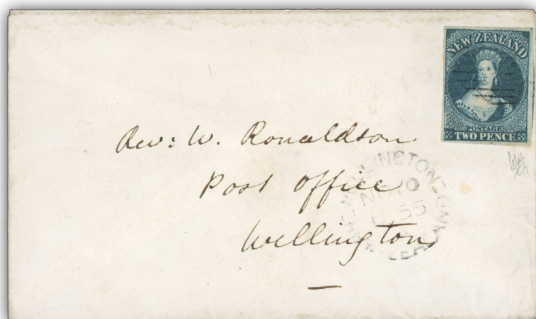 NEW ZEALAND
POSTAGE
TWO PENCE
Rev: W. Ronaldson
Post Office
Wellington